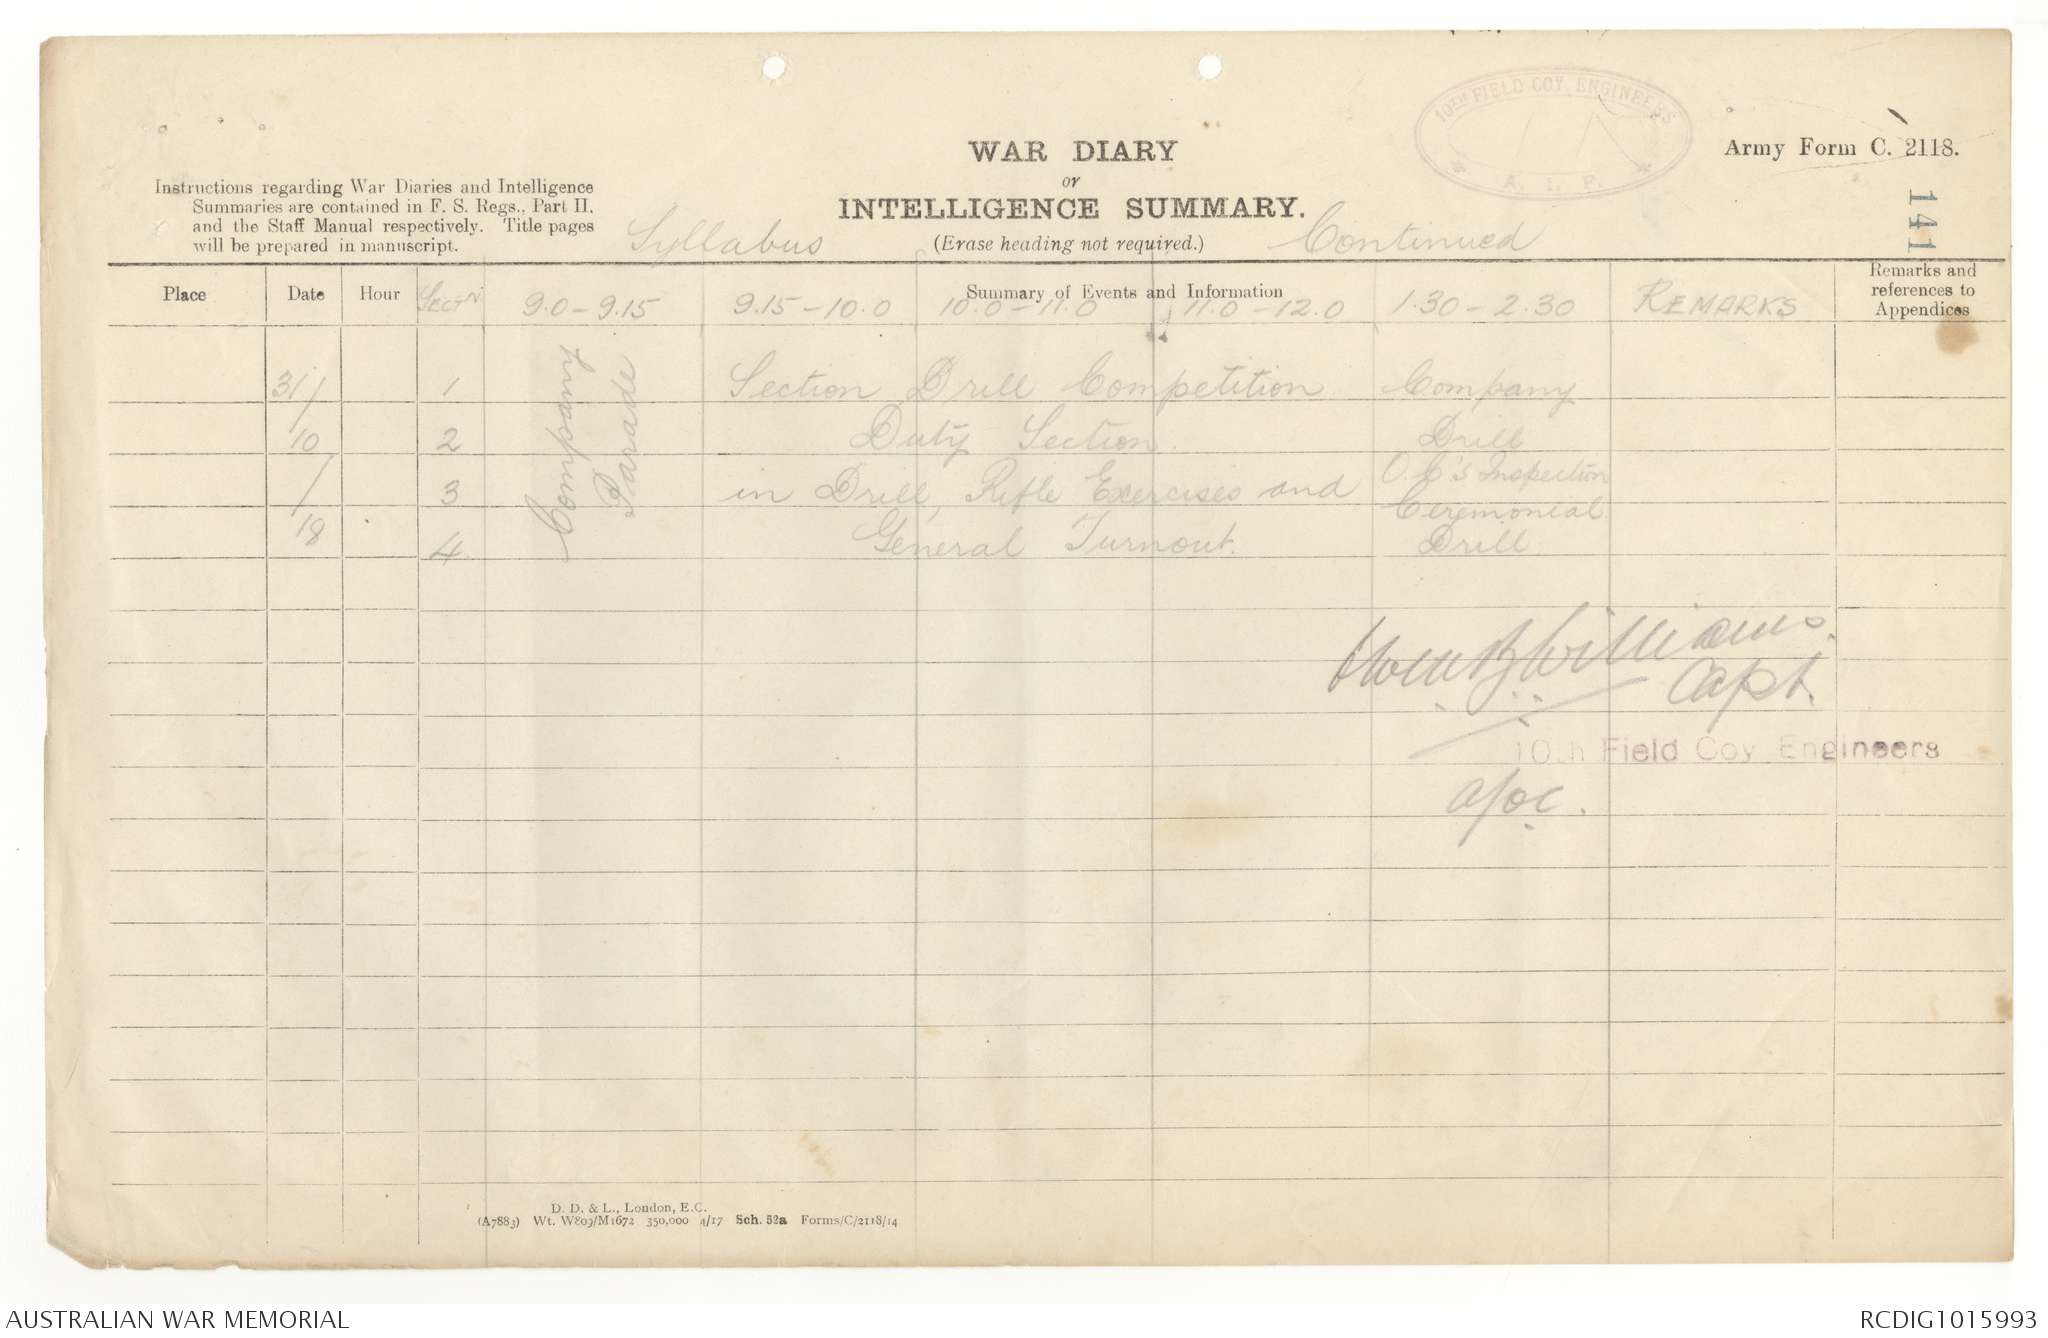 10TH FIELD COY, ENGINEERS
A. I. F.
WAR DIARY
or
INTELLIGENCE SUMMARY.
(Erase heading not required.)
Army Form C. 2118.
141
Instructions regarding War Diaries and Intelligence
Summaries are contained in F. S. Regs., Part II,
and the Staff Manual respectively. Title pages
will be prepared in manuscript.
Syllabus
Continued
Place Date Hour Sectn 9.0 - 9.15 Summary of Events and Information
9.15 - 10.0 10.0 - 11.0 11.0 - 12.0 1.30 - 2.30 REMARKS
Remarks and
references to
Appendices
31/ 1 Section Drill Competition Company
10 2 Duty Section. Drill
/ 3 in Drill, Rifle Exercises and O.C's Inspection
Ceremonial
18 4 General Turnout. Drill.
Company
Parade
Williams.
Capt.
10th Field Coy Engineers
a/oc.
D. D. & L., London, E.C.
(A7883) Wt. W809/M1672 350,000 4/17 Sch. 52a Forms/C/2118/14
AUSTRALIAN WAR MEMORIAL
RCDIG1015993